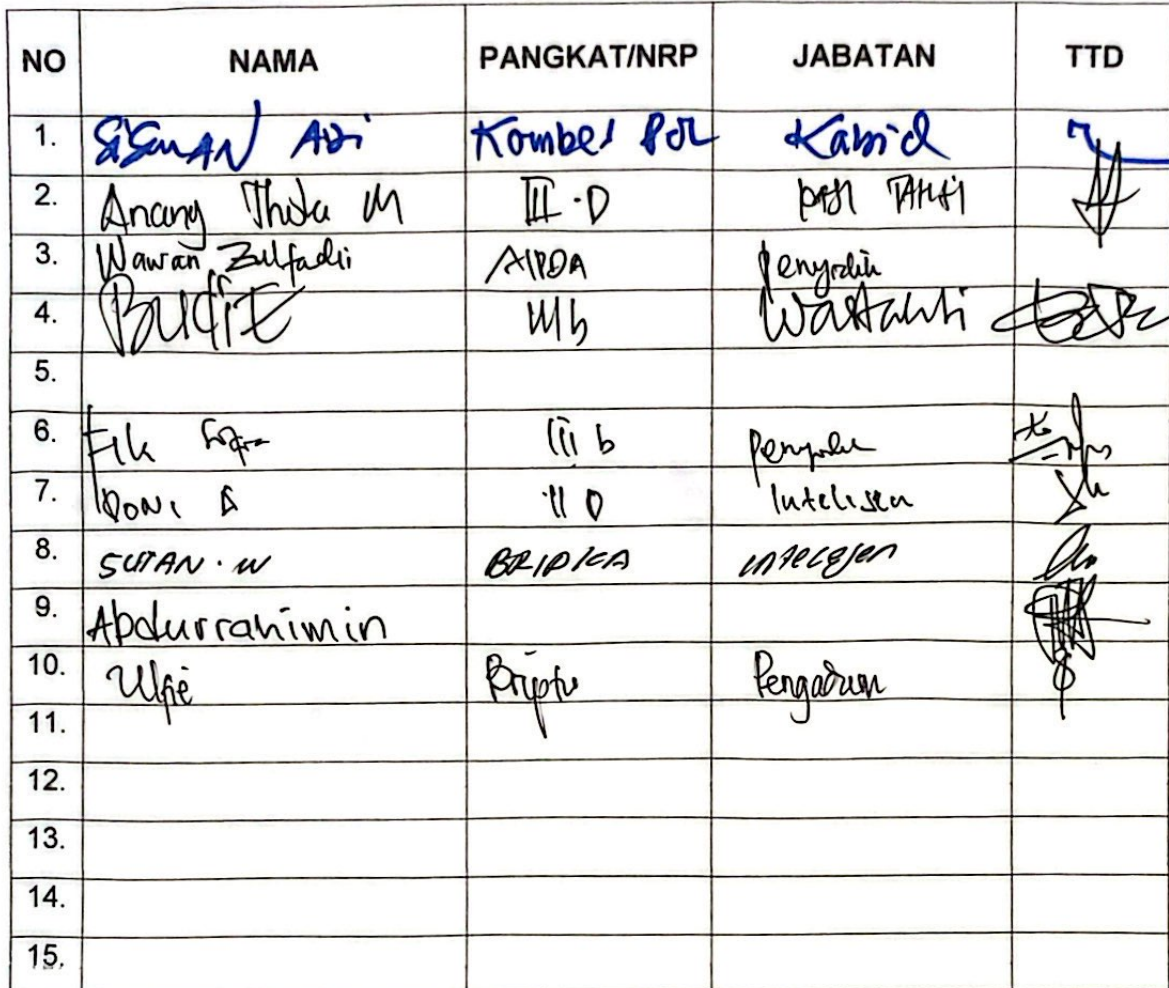 NO NAMA PANGKAT/NRP JABATAN TTD
1. SiSwAN Adi Kombes Pol Kabid
2. Anang M III.D
3. Wawan Zulfadli AIPDA Penyidik
4. IIIb
5.
6. III b Penyidik
7. DONI II D Intelisen
8. SUTAN.W BRIPKA intelejen
9. Abdurrahimin
10. Ulfie Briptu Pengaduan
11.
12.
13.
14.
15.